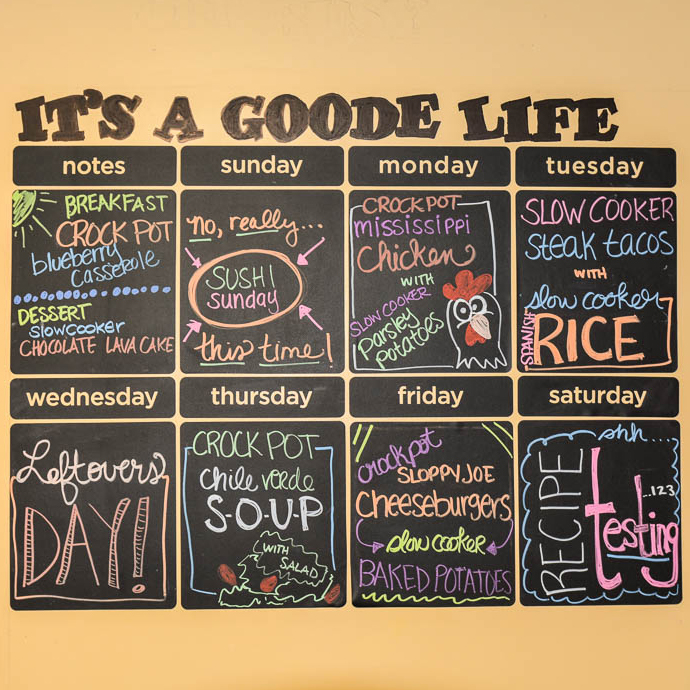 IT'S A GOODE LIFE
notes
BREAKFAST
CROCK POT
blueberry
casserole
DESSERT
slowcooker
CHOCOLATE LAVA CAKE
sunday
no, really...
SUSHI
sunday
this time!
monday
CROCKPOT
mississippi
Chicken
WITH
SLOW COOKER
Parsley
potatoes
tuesday
SLOW COOKER
steak tacos
WITH
slow cooker
SPANISH
RICE
wednesday
Leftovers
DAY!
thursday
CROCK POT
chile verde
S-O-U-P
WITH
SALAD
friday
crockpot
SLOPPY JOE
Cheeseburgers
slow cooker
BAKED POTATOES
saturday
shh....
RECIPE
testing
..123